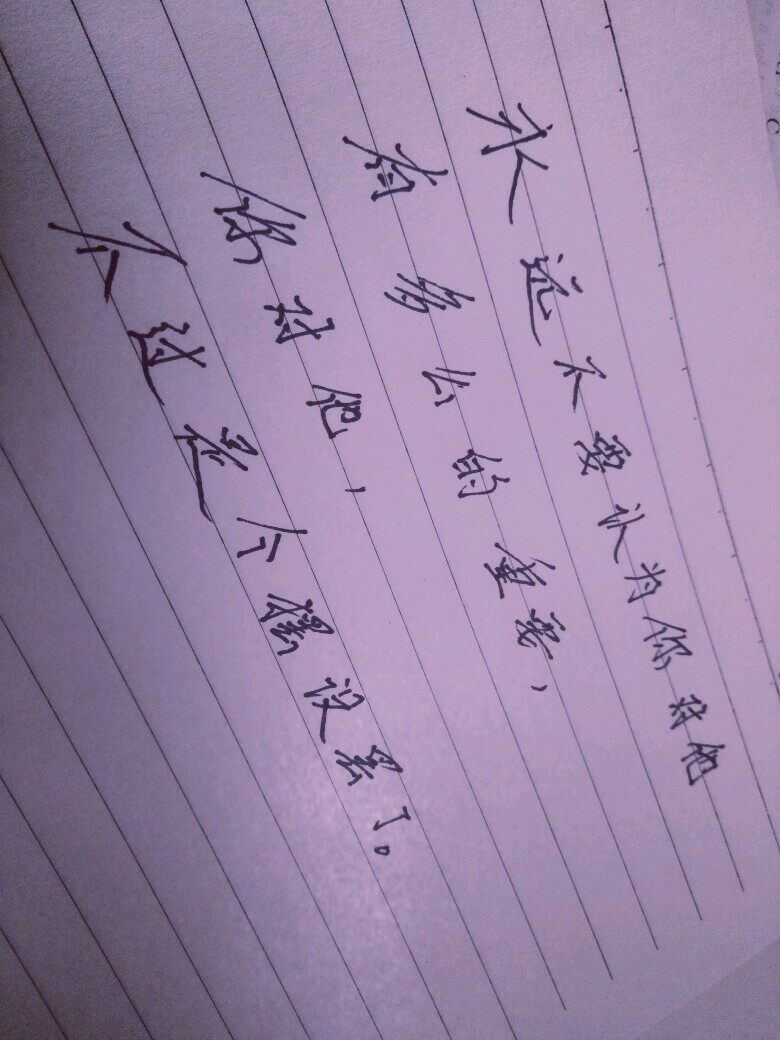 永远不要认为你对他
有多么的重要，
你对他，
不过是个摆设罢了。